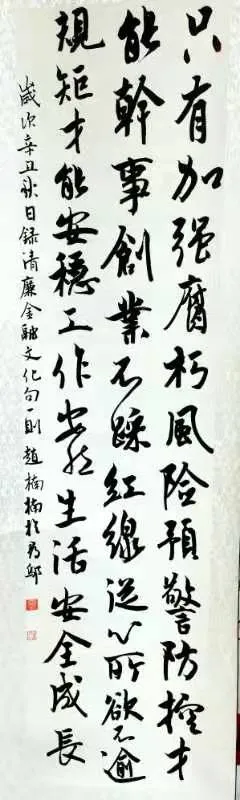 只有加强腐朽風险預警防控才
能幹事創業不踩紅線从心所欲不逾
規矩才能安穩工作安然生活安全成長
歲次辛丑秋日録清廉金融文化句一則 趙楠楠於